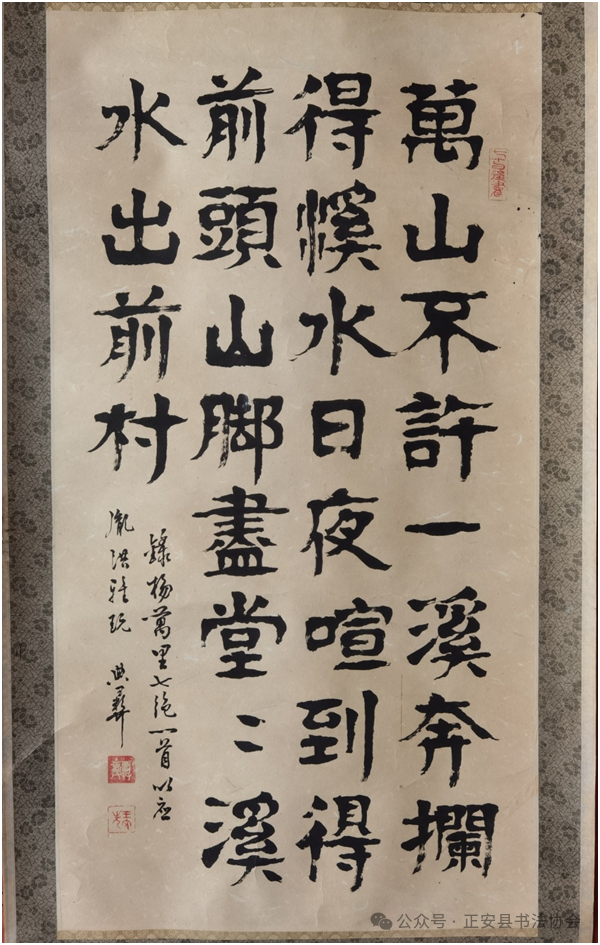 萬山不許一溪奔攔
得溪水日夜喧到得
前頭山脚盡堂〻溪
水出前村
錄楊萬里七绝一首以应
胤洪雅玩 典彝
公众号·正安县书法协会